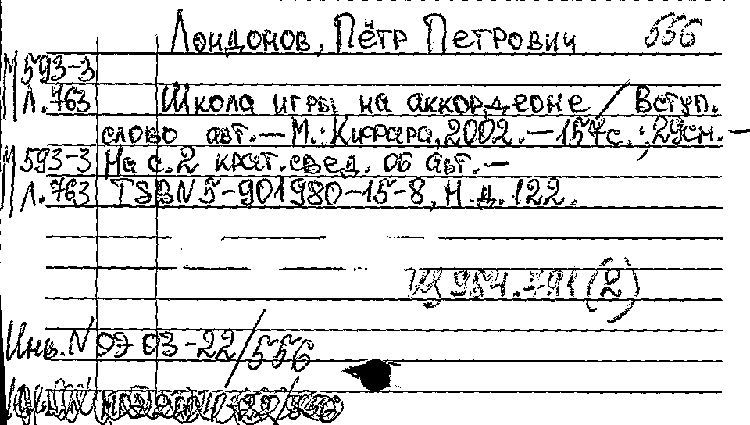 Лондонов, Пётр Петрович 556
М 593-3
Л. 763 Школа игры на аккордеоне / Вступ.
слово авт. — М.: Кифара, 2002. — 154 с.; 29 см. —
М 593-3 На с. 2 крат. свед. об авт. —
Л. 763 ISBN 5-901980-15-8, Н.д. 122.
Щ 984.791 (2)
Инв. N 07 03-22/556